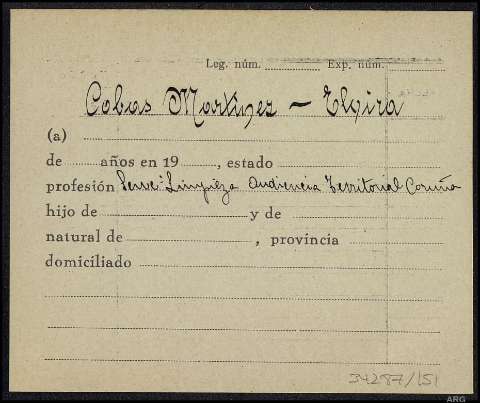 Leg. núm. Exp. núm.
Cobas Martínez - Elvira
(a)
de años en 19 , estado
profesión Serv.º Limpieza Audiencia Territorial Coruña
hijo de y de
natural de , provincia
domiciliado
34287/151
ARG